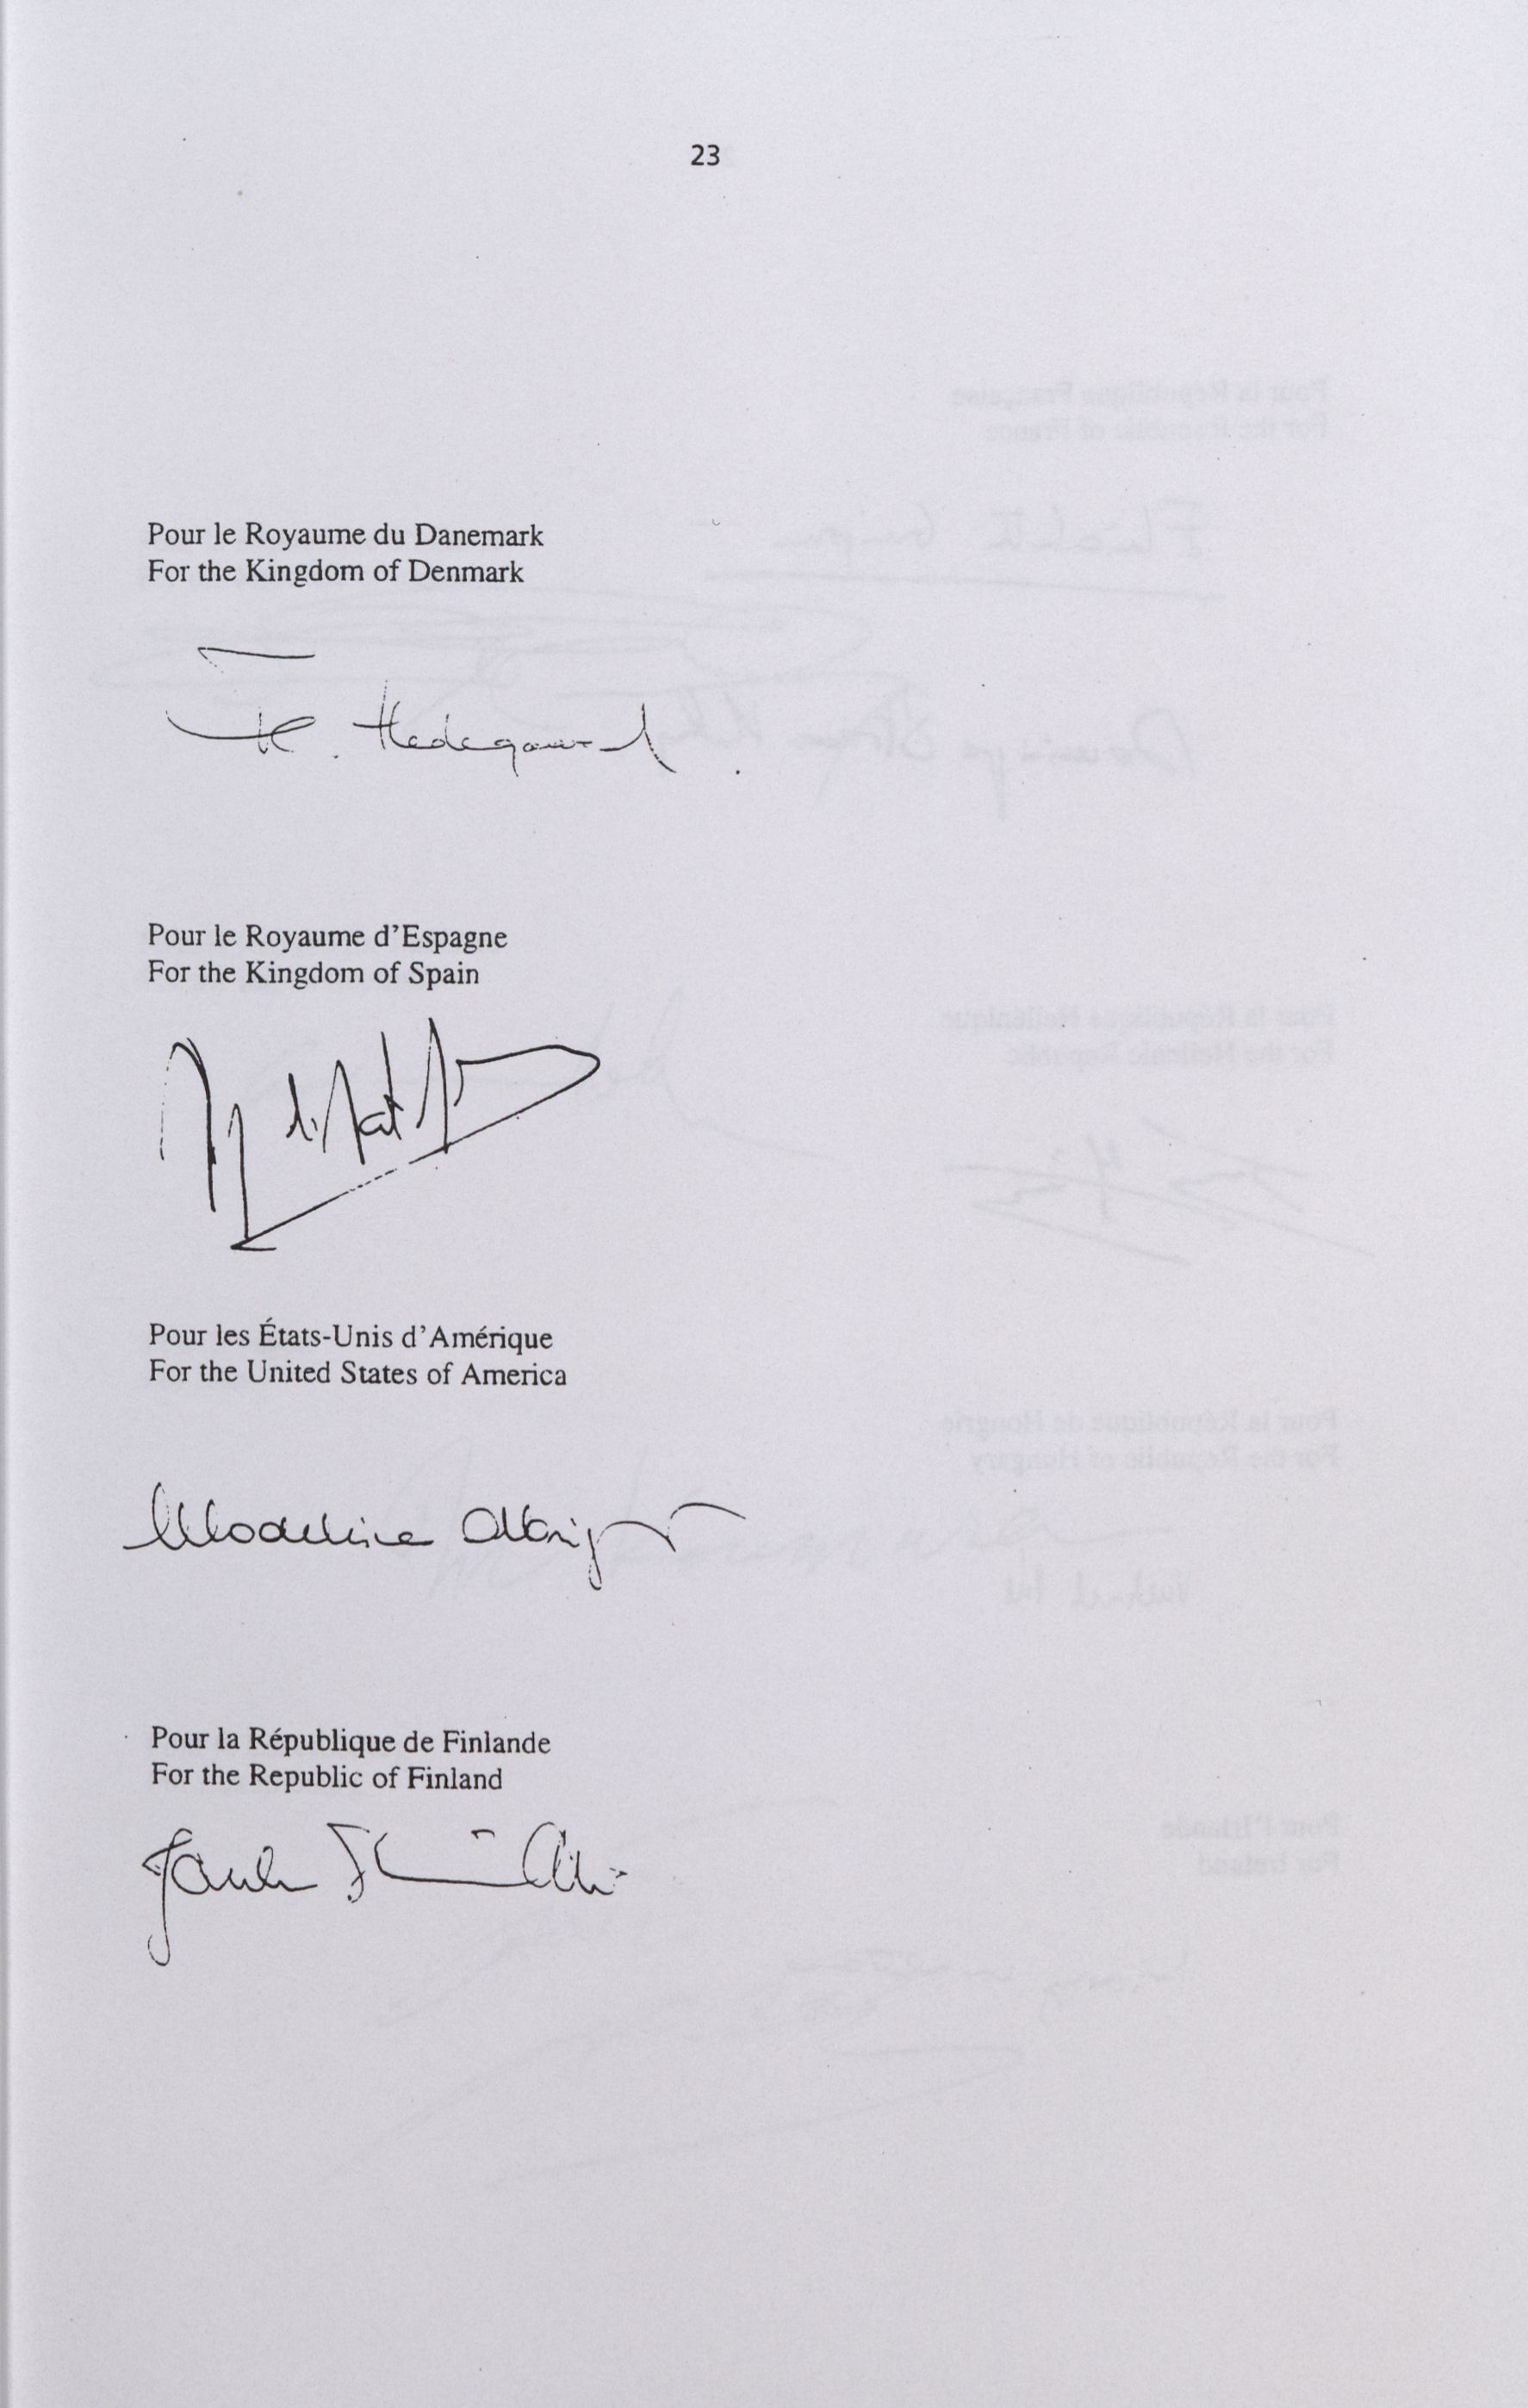 23
Pour le Royaume du Danemark
For the Kingdom of Denmark
Hedegaard
Pour le Royaume d'Espagne
For the Kingdom of Spain
Pour les États-Unis d'Amérique
For the United States of America
Madeleine Albright
Pour la République de Finlande
For the Republic of Finland